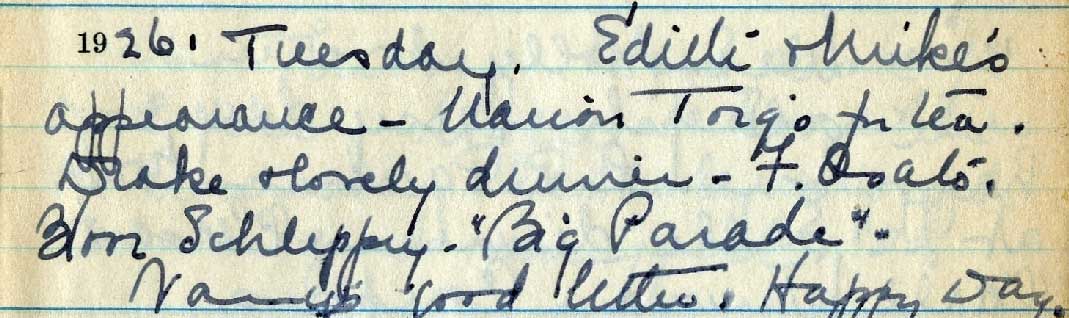 1926. Tuesday. Edith & Mike's
appearance - Marion Torg's for tea.
Drake & lovely dinner - F. Osato.
Schleppy - "Big Parade" -
good letter. Happy Day.